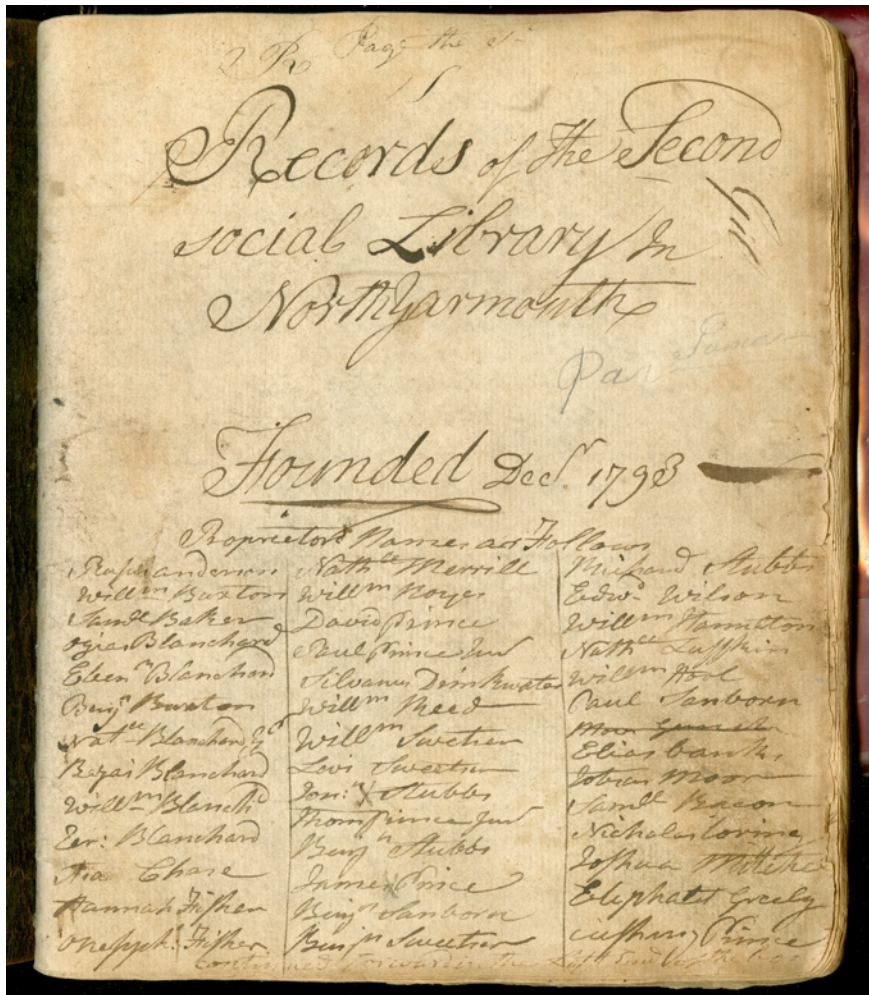 Page the
Records of the Second
social Library In
NorthYarmouth
Founded Decr. 1793
Proprietors Names as Follows
anderson
Willm Buxton
Saml Baker
Ozias Blanchard
Eben Blanchard
Benjn Buxton
Natel Blanchard
Blanchard
Willm Blanchd
Blanchard
Chase
Hannah Fisher
Fisher
Nathll Merrill
Willm Noyes
David Prince
Paul Prince Junr
Silvanus Drinkwater
Willm Reed
Willm Sweetser
Levi Sweetser
Jonn: X Stubbs
Thom Prince Junr
Benjn Stubbs
James Prince
Benjn Sanborn
Benjn Sweetser
Richard Stubbs
Edwd Wilson
Willm Hamaton
Nathll Luffkin
Willm Hool
Paul Sanborn
Elias banks
Tobias Moor
Saml Bacon
Nicholas Loring
Joshua
Eliphalet Greely
Cushing Prince
continued forward in the Last End of the boo